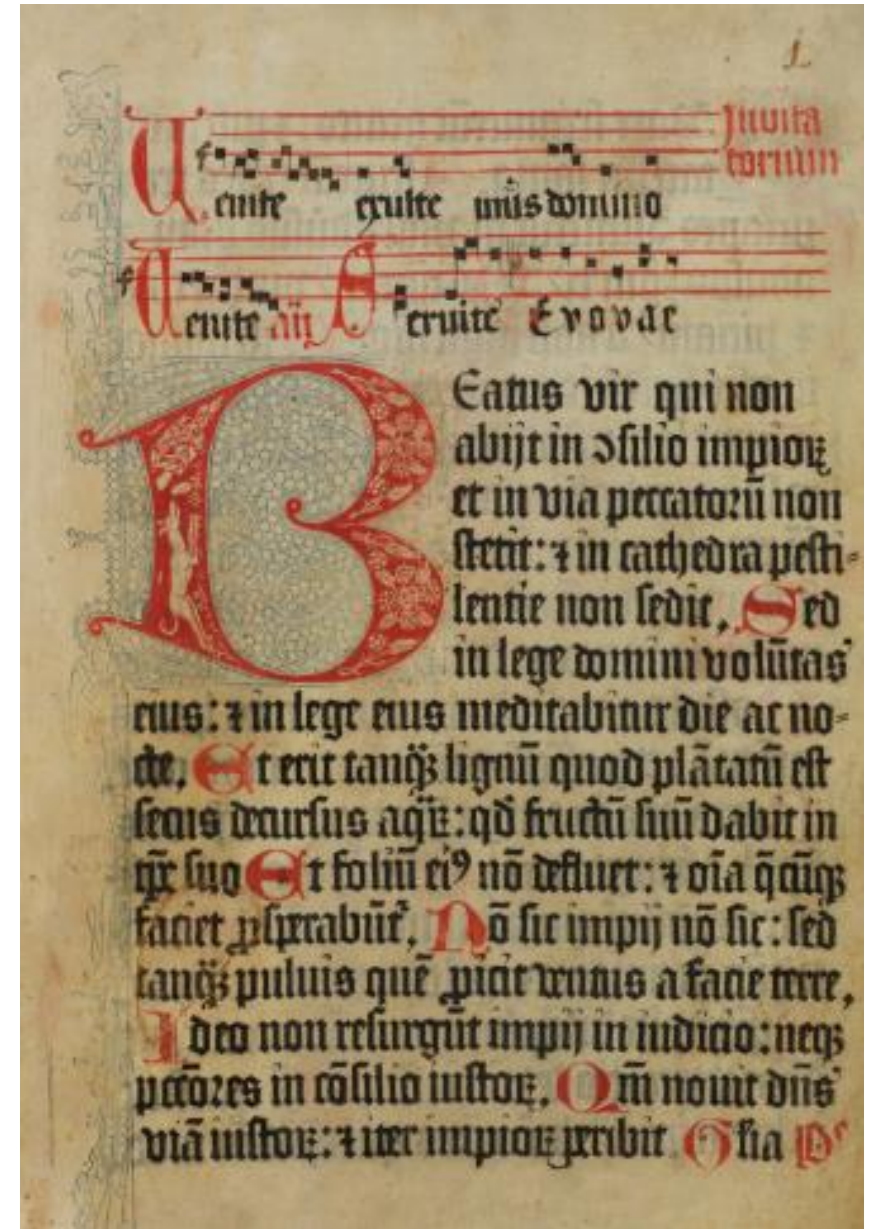 L
Uenite exulte mus domino Inuita
torium
Uenite añ A eruite Evovae
BEatus vir qui non
abijt in ↄsilio impioꝝ
et in via peccatorū non
stetit: ⁊ in cathedra pesti⸗
lentie non sedit. Sed
in lege domini volūtas
eius: ⁊ in lege eius meditabitur die ac no⸗
cte. Et erit tanq̄ꝫ lignū quod plātatū est
secus decursus aqꝝ: qd̄ fructū suū dabit in
tp̄e suo Et foliū eiꝰ nō defluet: ⁊ oīa q̄cūqꝫ
faciet ꝓsperabūt̄. Nō sic impij nō sic: sed
tanq̄ꝫ puluis quē ꝓicit ventus a facie terre.
Ideo non resurgūt impij in iudicio: neqꝫ
pctōres in cōsilio iustoꝝ. Qm̄ nouit dn̄s
viā iustoꝝ: ⁊ iter impioꝝ peribit Gl̄ia